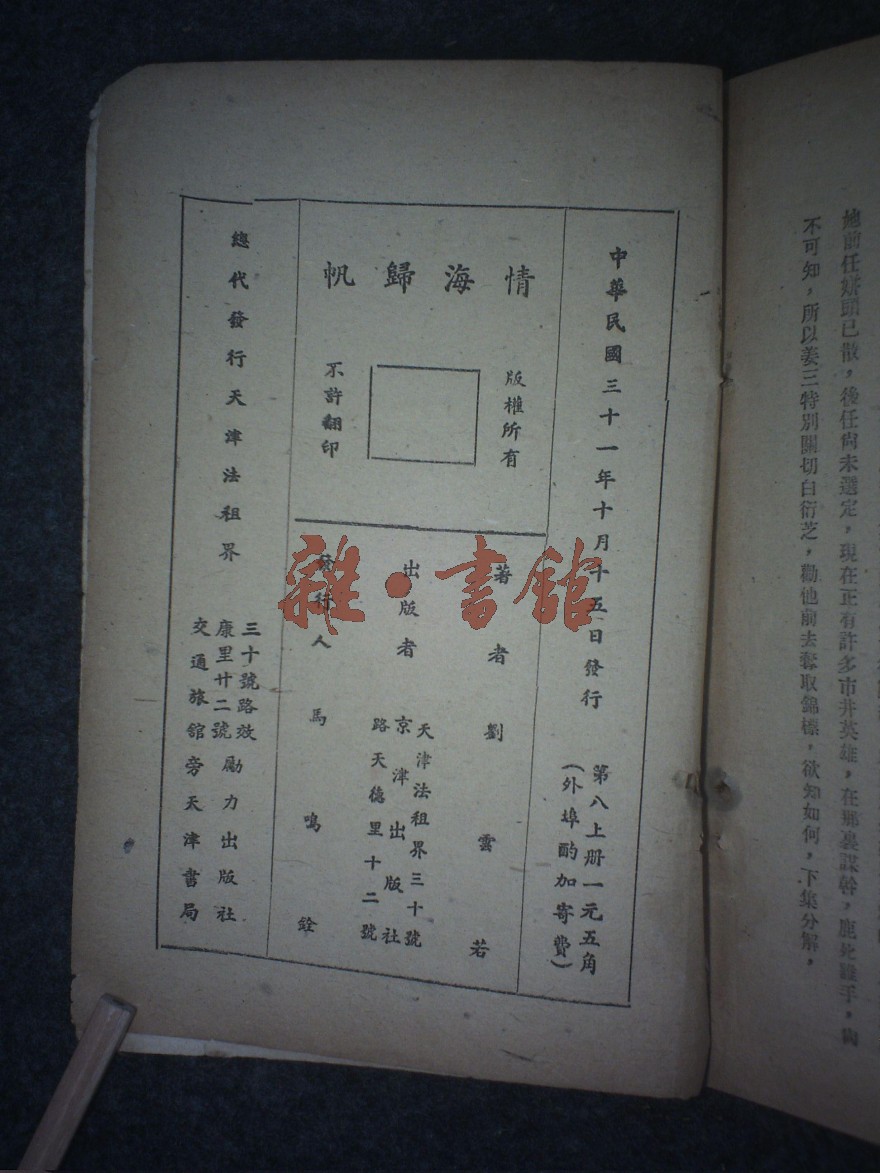 她前任姘頭已散，後任尙未選定，現在正有許多市井英雄，在那裏謀幹，鹿死誰手，尙
不可知，所以姜三特別關切白衍芝，勸他前去奪取錦標，欲知如何，下集分解，
中華民國三十一年十月十五日發行
第八上册一元五角
（外埠酌加寄費）
情海歸帆
版權所有
不許翻印
著者 劉雲若
出版者
天津法租界三十號
京津出版社
路天德里十二號
發行人 馬鳴銓
總代發行天津法租界
三十號路效
康里廿二號
勵力出版社
交通旅館旁天津書局
雜·書館